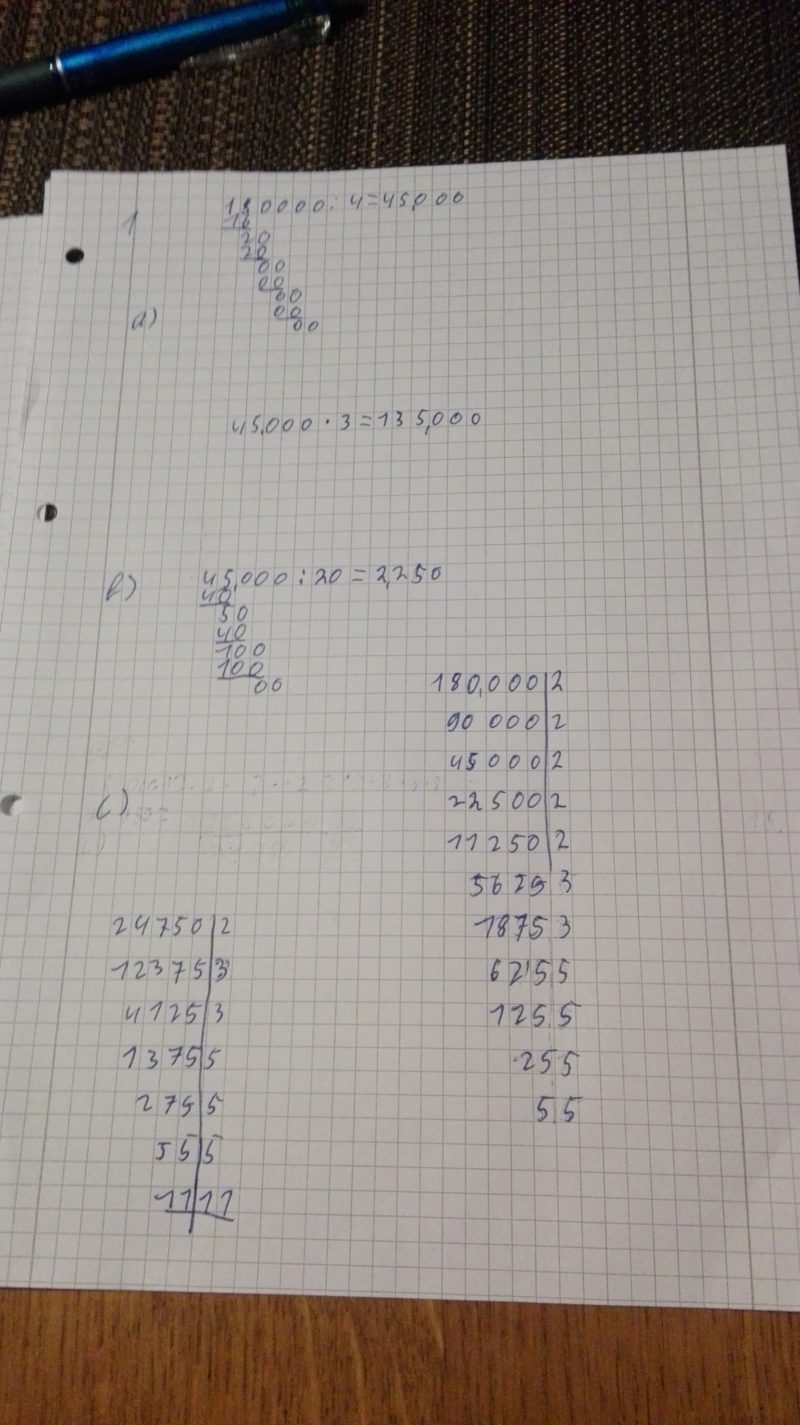 1 180000 : 4 = 45,000
16
20
20
00
00
00
00
00
a)
45,000 · 3 = 135,000
b) 45,000 : 20 = 2,250
40
50
40
100
100
00
c)
180,000 | 2
90 000 | 2
45000 | 2
22500 | 2
11250 | 2
5625 3
1875 3
625 5
125 5
25 5
5 5
24750 | 2
12375 | 3
4125 | 3
1375 | 5
275 | 5
55 | 5
11 | 11